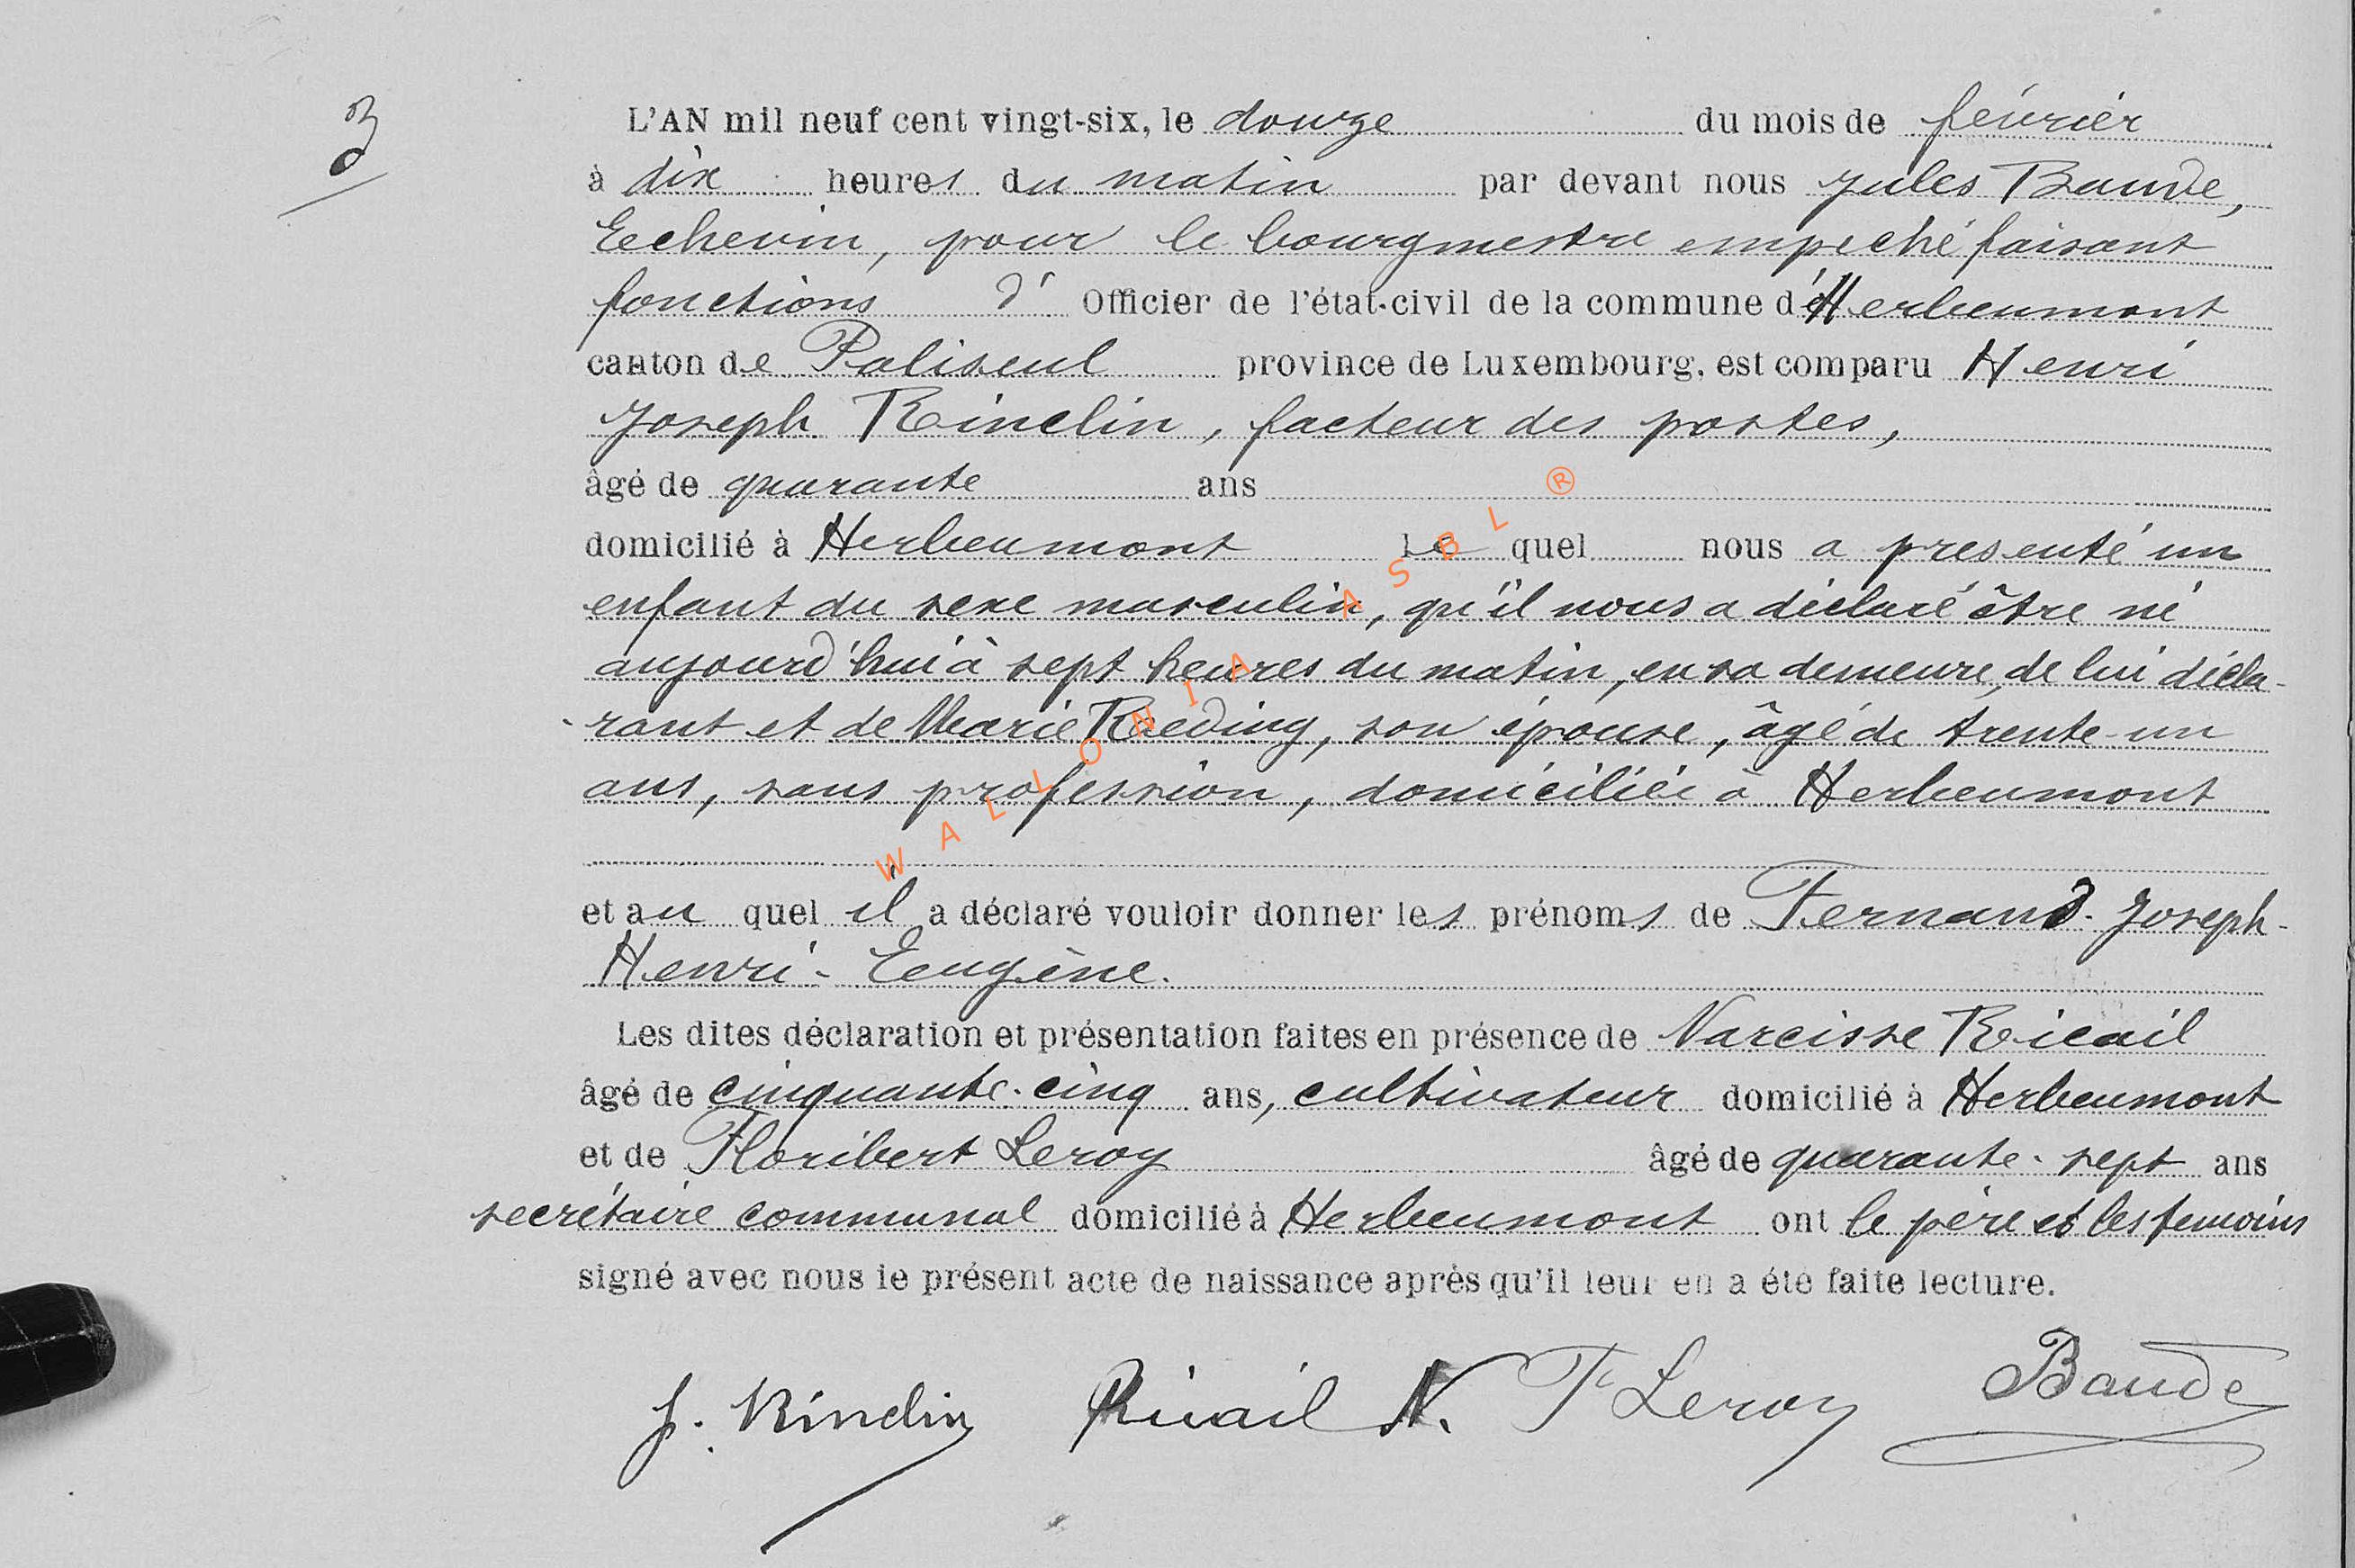 3
L'AN mil neuf cent vingt-six, le douze du mois de février
à dix heures du matin par devant nous Jules Baude,
Echevin, pour le bourgmestre empeché faisant
fonctions d' Officier de l'état-civil de la commune d'Herbeumont
canton de Paliseul province de Luxembourg, est comparu Henri
Joseph Rinclin, facteur des postes,
âgé de quarante ans
domicilié à Herbeumont lequel nous a presenté un
enfant du sexe masculin, qu'il nous a déclaré être né
aujourd'hui à sept heures du matin, en sa demeure, de lui décla-
-rant et de Marie Roeding, son épouse, âgé de trente-un
ans, sans profession, domiciliée à Herbeumont
et au quel il a déclaré vouloir donner les prénoms de Fernand-Joseph-
Henri-Eugène.
Les dites déclaration et présentation faites en présence de Narcisse Ricail
âgé de cinquante-cinq ans, cultivateur domicilié à Herbeumont
et de Floribert Leroy âgé de quarante-sept ans
secrétaire communal domicilié à Herbeumont ont le père et les temoins
signé avec nous le présent acte de naissance après qu'il leur en a été faite lecture.
J. Rinclin Ricail N. F Leroy Baude
WALLONIA ASBL ®